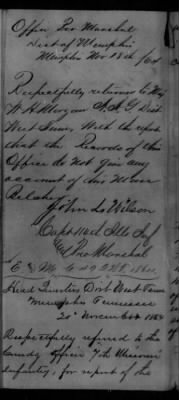 Office Pro Marshal
Dist of Memphis
Memphis Nov 18th /64
Respectfully returned to Maj
W. H. Morgan A.A.G. Dist
West Tenn. With the report
that the Records of this
Office do not give any
account of this
John L Wilson
Capt Ills Inf
Pro Marshal
E. & M.
Head Quarters Dist West Tenn
Memphis Tennessee
20 November 1864
Respectfully referred to the
Comdg Officer 7th Missouri
Infantry, for report of the